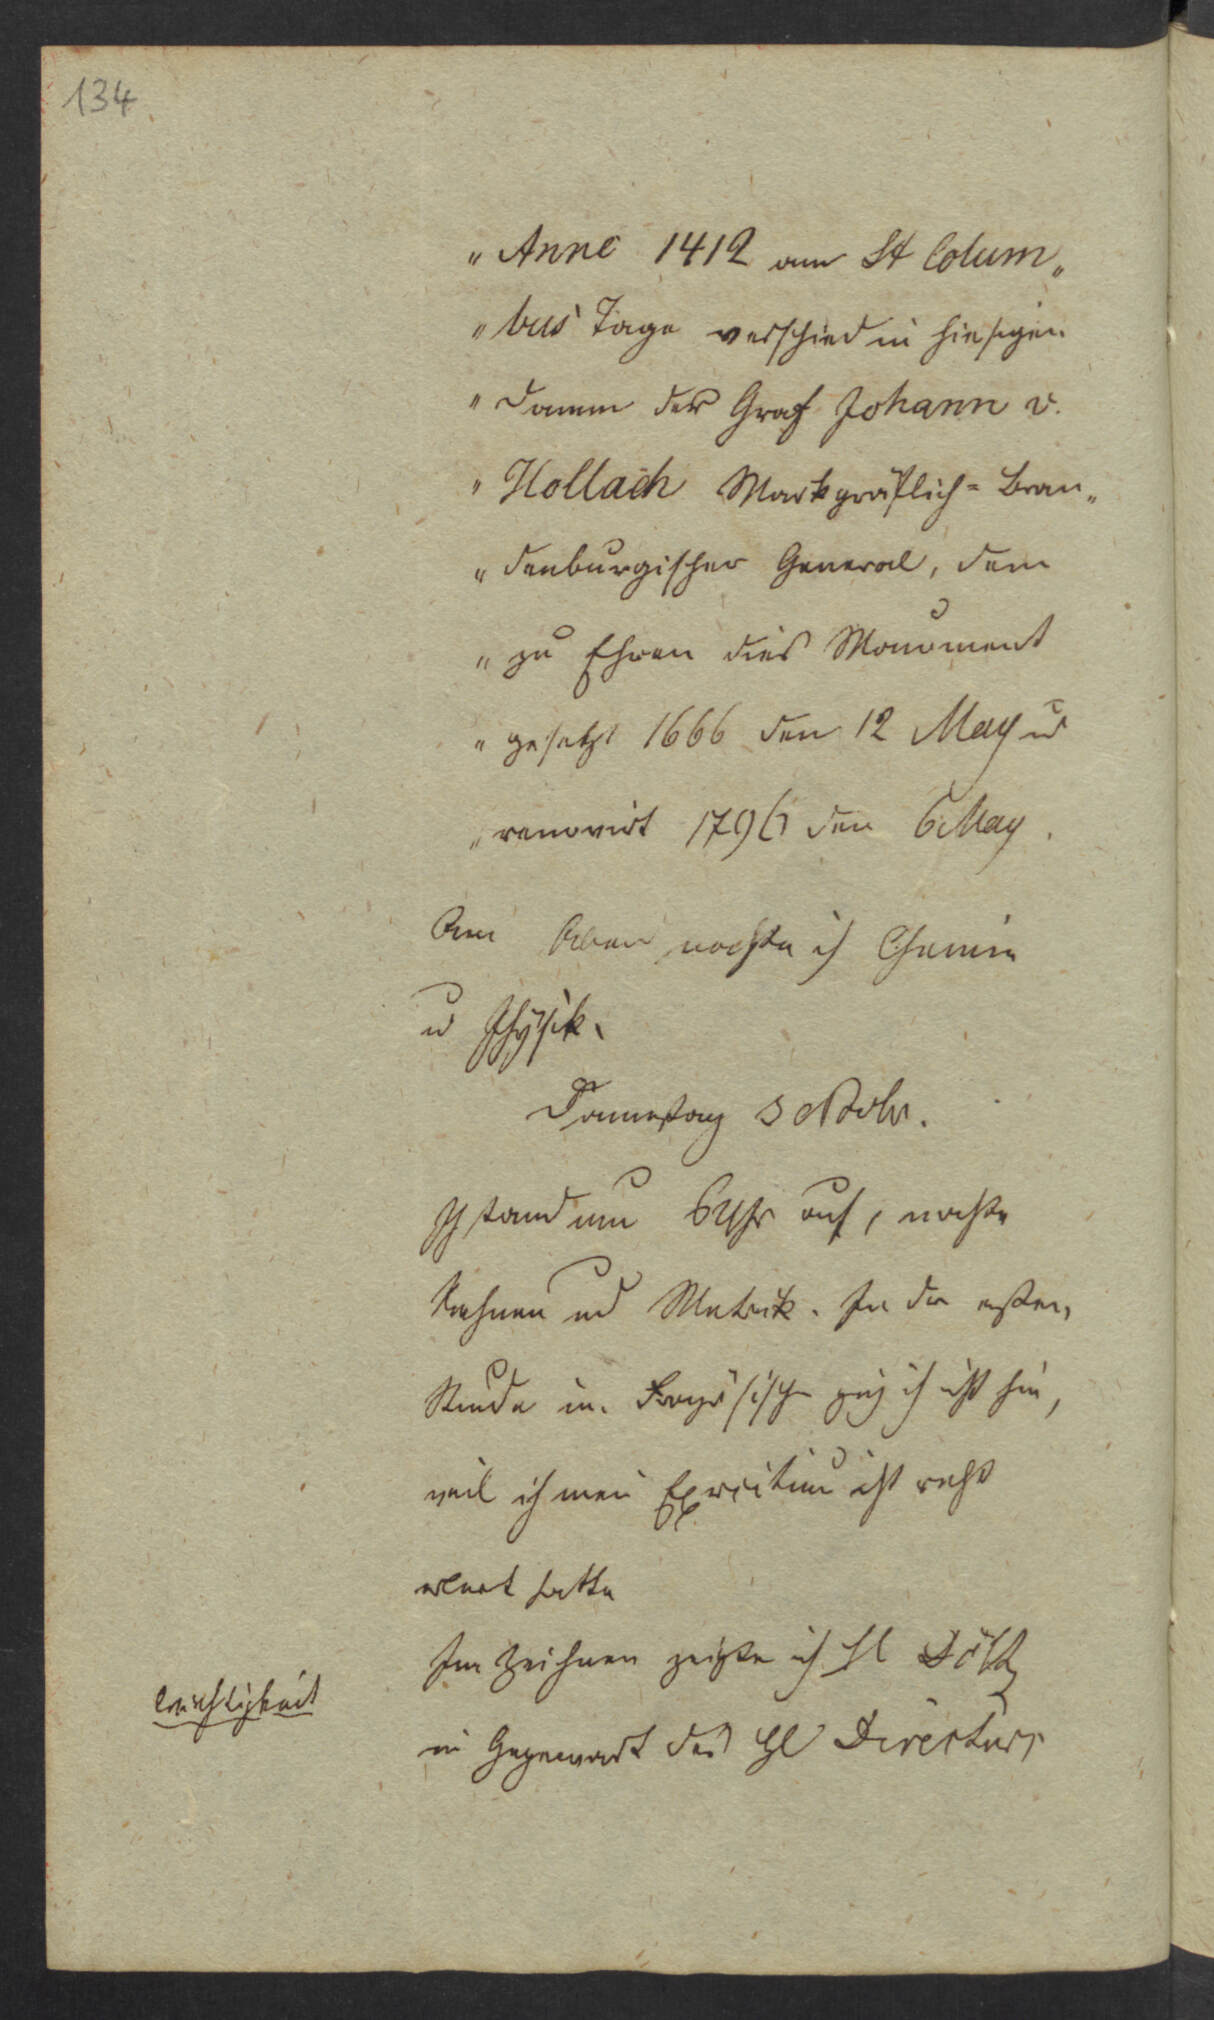 134
„ Anno 1412 am St Colum„
„ bus Tage verschied in hiesigen
„ Damm der Graf Johann v.
„ Hollach Markgräflich= Bran„
„ denburgischer General, dem
„ zu Ehren dies Monument
„ gesetzt 1666 den 12 May u
„ renovirt 1796 den 6 May.
Am Aben machte ich Chemie
u Physik.
Donnestag 3 Nobr.
Ich stand um 6 Uhr auf, machte
Rechnen ud Metrik. In der ersten
Stunde in. Franzö sische ging ich nicht hin,
weil ich mein Exercitium nicht recht
erlernt hatte
Im Zeichnen zeigte ich H
in Gegenwart des H Directors